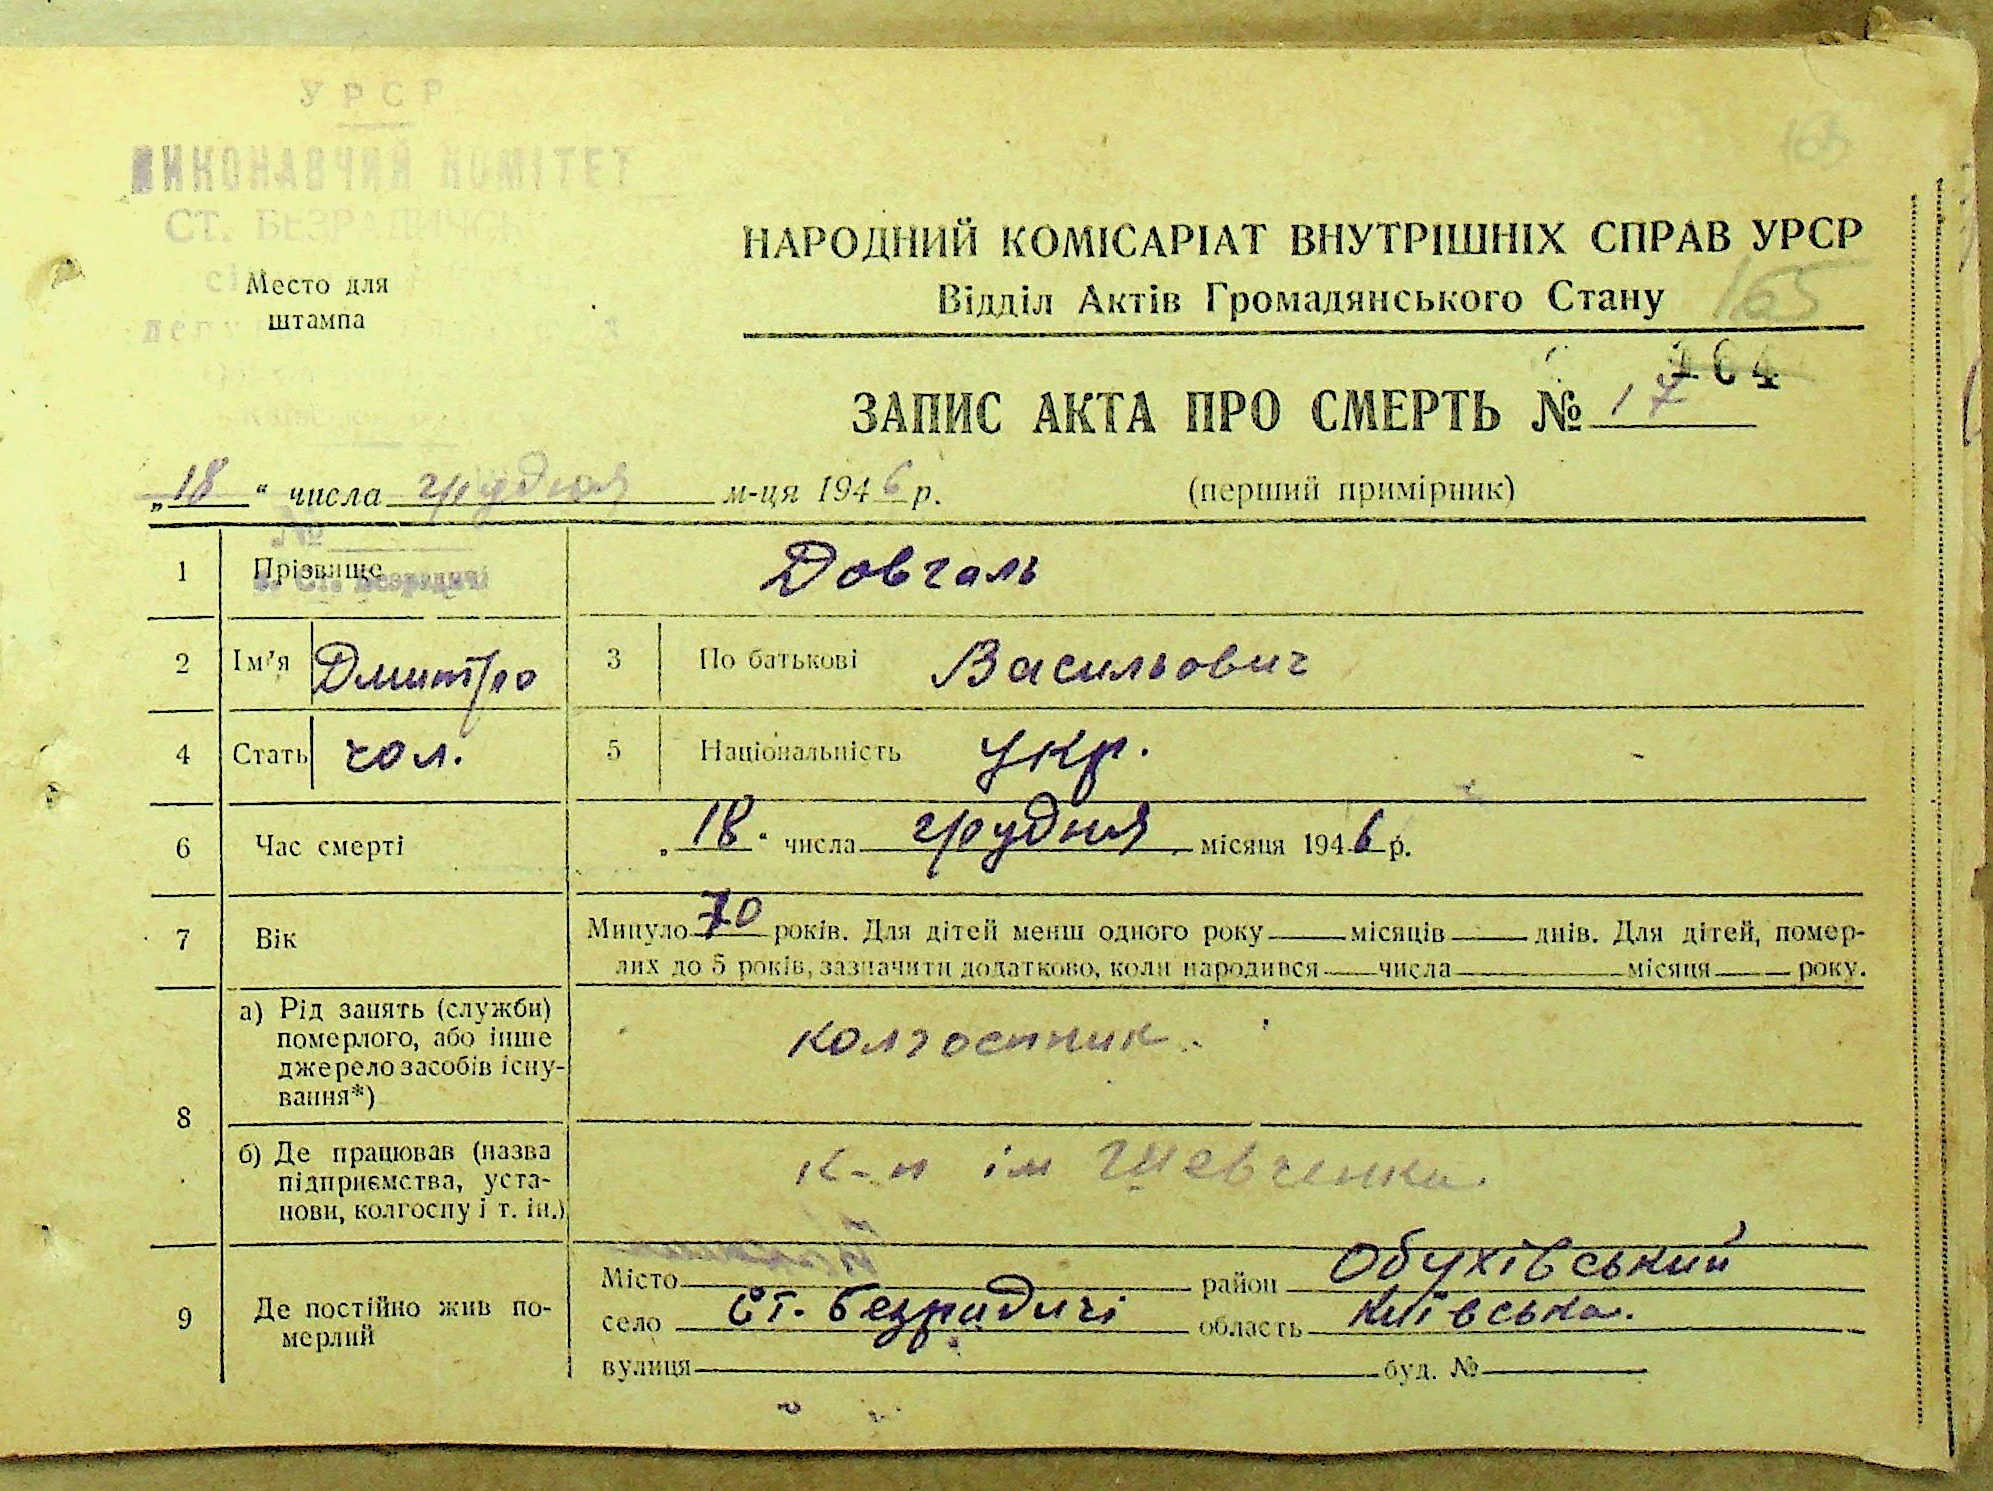 УРСР
ВИКОНАВЧИЙ КОМІТЕТ
СТ. БЕЗРАДИЧСЬК
Место для
штампа
165
НАРОДНИЙ КОМІСАРІАТ ВНУТРІШНІХ СПРАВ УРСР
Відділ Актів Громадянського Стану 165
164
ЗАПИС АКТА ПРО СМЕРТЬ № 17
„18“ числа грудня м-ця 1946 р. (перший примірник)
№
1 Прізвище Довгаль
с. Ст. Безрадичі
2 Ім'я Дмитро 3 По батькові Васильович
4 Стать чол. 5 Національність укр.
6 Час смерті „18“ числа грудня місяця 1946 р.
7 Вік Минуло 70 років. Для дітей менш одного року місяців днів. Для дітей, помер-
лих до 5 років, зазначити додатково, коли народився числа місяця року.
8 а) Рід занять (служби)
померлого, або інше
джерело засобів існу-
вання*) колгоспник.
б) Де працював (назва
підприємства, уста-
нови, колгоспу і т. ін.) к-п ім Шевченка.
9 Де постійно жив по-
мерлий
Місто район Обухівський
село Ст. Безрадичі область Київська.
вулиця буд. №